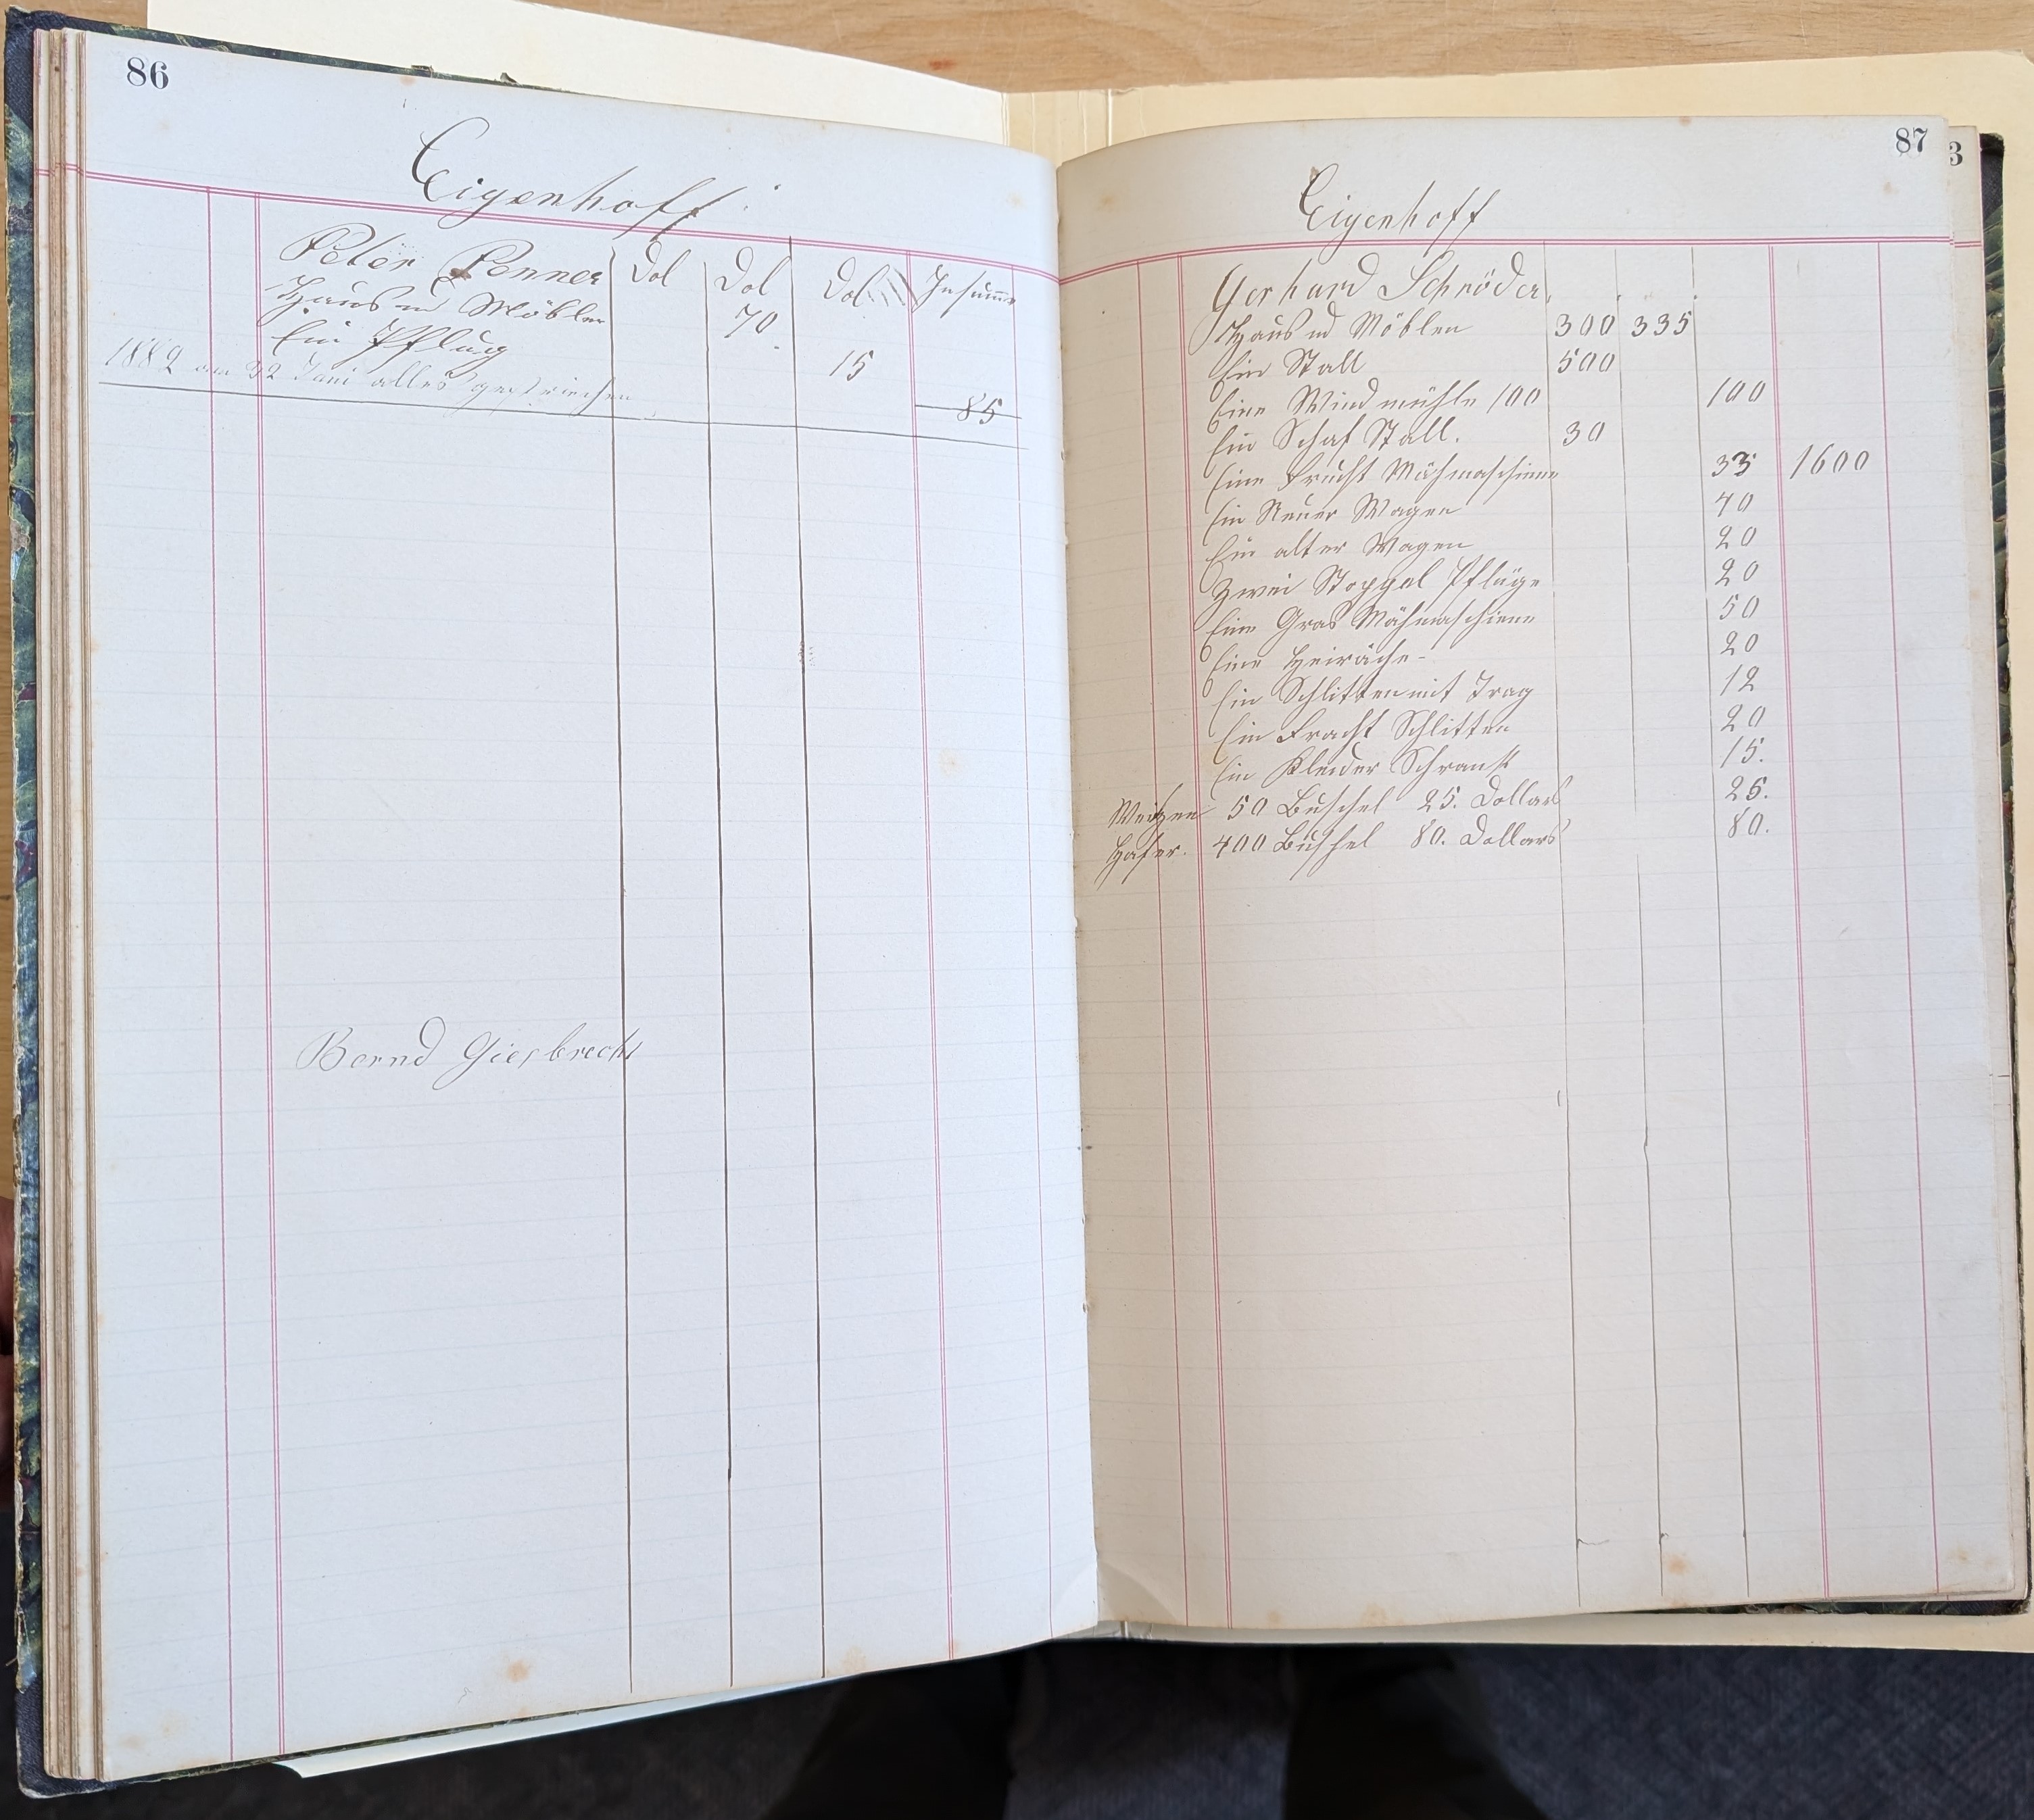 86
Eigenhoff
Peter Penner Dol Dol Dol Insumme
Haus u Möblen 70
Ein Pflug 15
1882 am 22 Juni alles gestrichen
85
Bernd Giesbrecht
87
3
Eigenhoff
Gerhard Schröder
Haus u Möblen 300 335
Ein Stall 500
Eine Windmühle 100 100
Ein Schaf Stall. 30
Eine Frucht Mähmaschiene 33 1600
Ein Neuer Wagen 40
Ein alter Wagen 20
Zwei Stoppel Pflüge 20
Eine Gras Mähmaschiene 50
Eine Heiräche 20
Ein Schlitten mit Trag 12
Ein Fracht Schlitten 20
Ein Kleider Schrank 15.
Weitzen 50 Buschel 25. Dollars 25.
Hafer. 400 Buschel 80. Dollars 80.